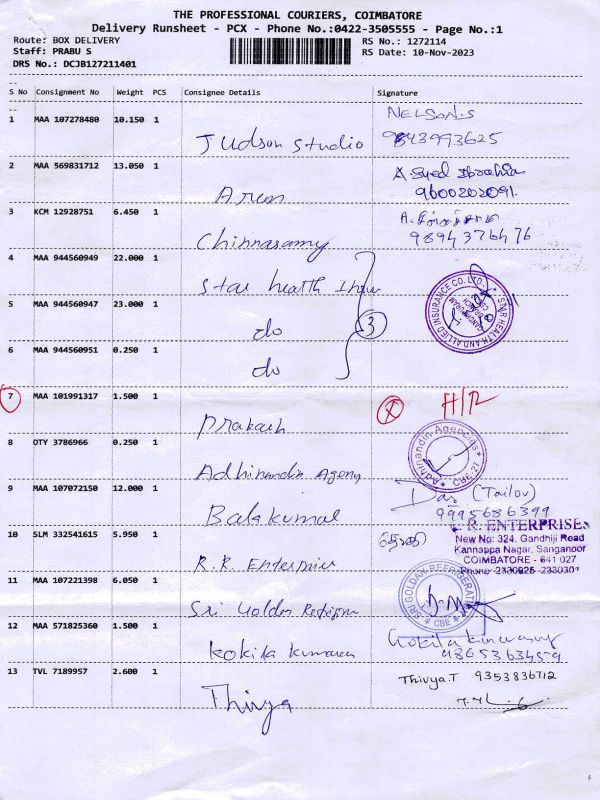 THE PROFESSIONAL COURIERS, COIMBATORE
Delivery Runsheet - PCX - Phone No.:0422-3505555 - Page No.:1
Route: BOX DELIVERY RS No.: 1272114
Staff: PRABU S RS Date: 10-Nov-2023
DRS No.: DCJB127211401
S No Consignment No Weight PCS Consignee Details Signature
1 MAA 107278480 10.150 1 Judson Studio NELSON.S
9843993625
2 MAA 569831712 13.050 1 Arun A Syed Ibrahim
9600202091.
3 KCM 12928751 6.450 1 Chinnasamy A.
9894376476
4 MAA 944560949 22.000 1 Star health
STAR HEALTH AND ALLIED INSURANCE CO. LTD.
5 MAA 944560947 23.000 1 do 3
6 MAA 944560951 0.250 1 do
7 MAA 101991317 1.500 1 Prakash
8 OTY 3786966 0.250 1 Adhinandin Agency
Adhinandin Agencies
CBE-27
9 MAA 107072150 12.000 1 Balakumar (Tailor)
9995686399
10 SLM 332541615 5.950 1 R.R. Enterprise
R. ENTERPRISES
New No: 324, Gandhiji Road
Kannappa Nagar, Sanganoor
COIMBATORE - 641 027
Phone 2330925 2330301
11 MAA 107221398 6.050 1 Sri Golden
SRI GOLDAN REFRIGERATI
CBE
12 MAA 571825360 1.500 1 Kokila Kumaran
9865363459
13 TVL 7189957 2.600 1 Thivya Thivya.T 9353836712